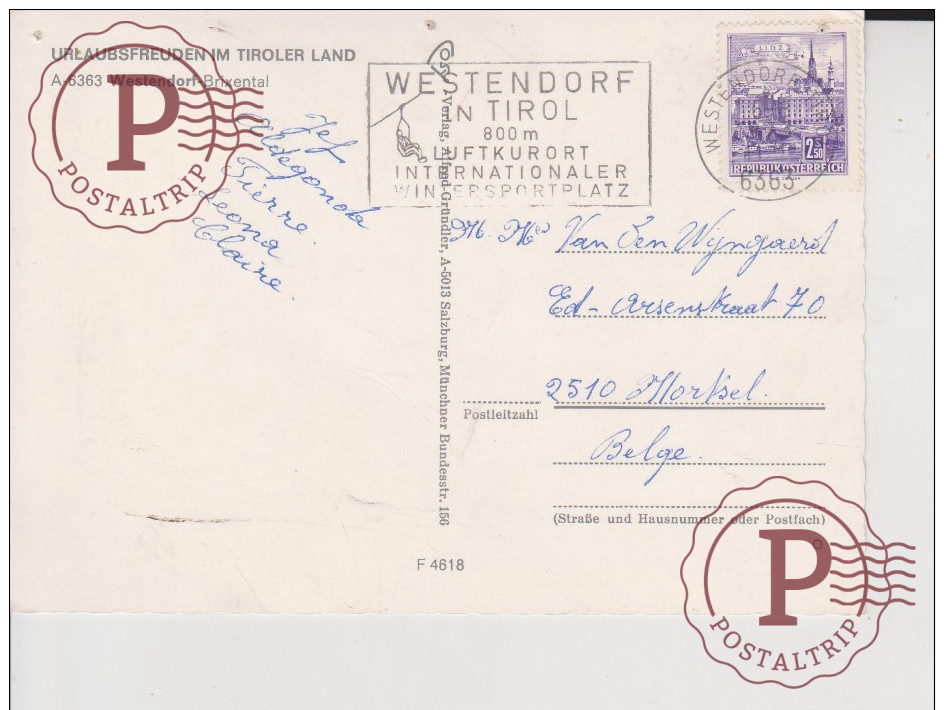 URLAUBSFREUDEN IM TIROLER LAND
A-6363 Westendorf-Brixental
P
POSTALTRIP
Jef
Aldegonda
Pierre
Leona
Claire.
WESTENDORF
IN TIROL
800 m
LUFTKURORT
INTERNATIONALER
WINTERSPORTPLATZ
WESTENDORF
6363
LINZ
2.50
S
REPUBLIK ÖSTERREICH
Verlag, Alfred Gründler, A-5013 Salzburg, Münchner Bundesstr. 156
M. Me Van Den Wijngaerd
Ed- Arsenstraat 70
2510 Mortsel.
Postleitzahl
Belge.
(Straße und Hausnummer oder Postfach)
F 4618
P
POSTALTRIP